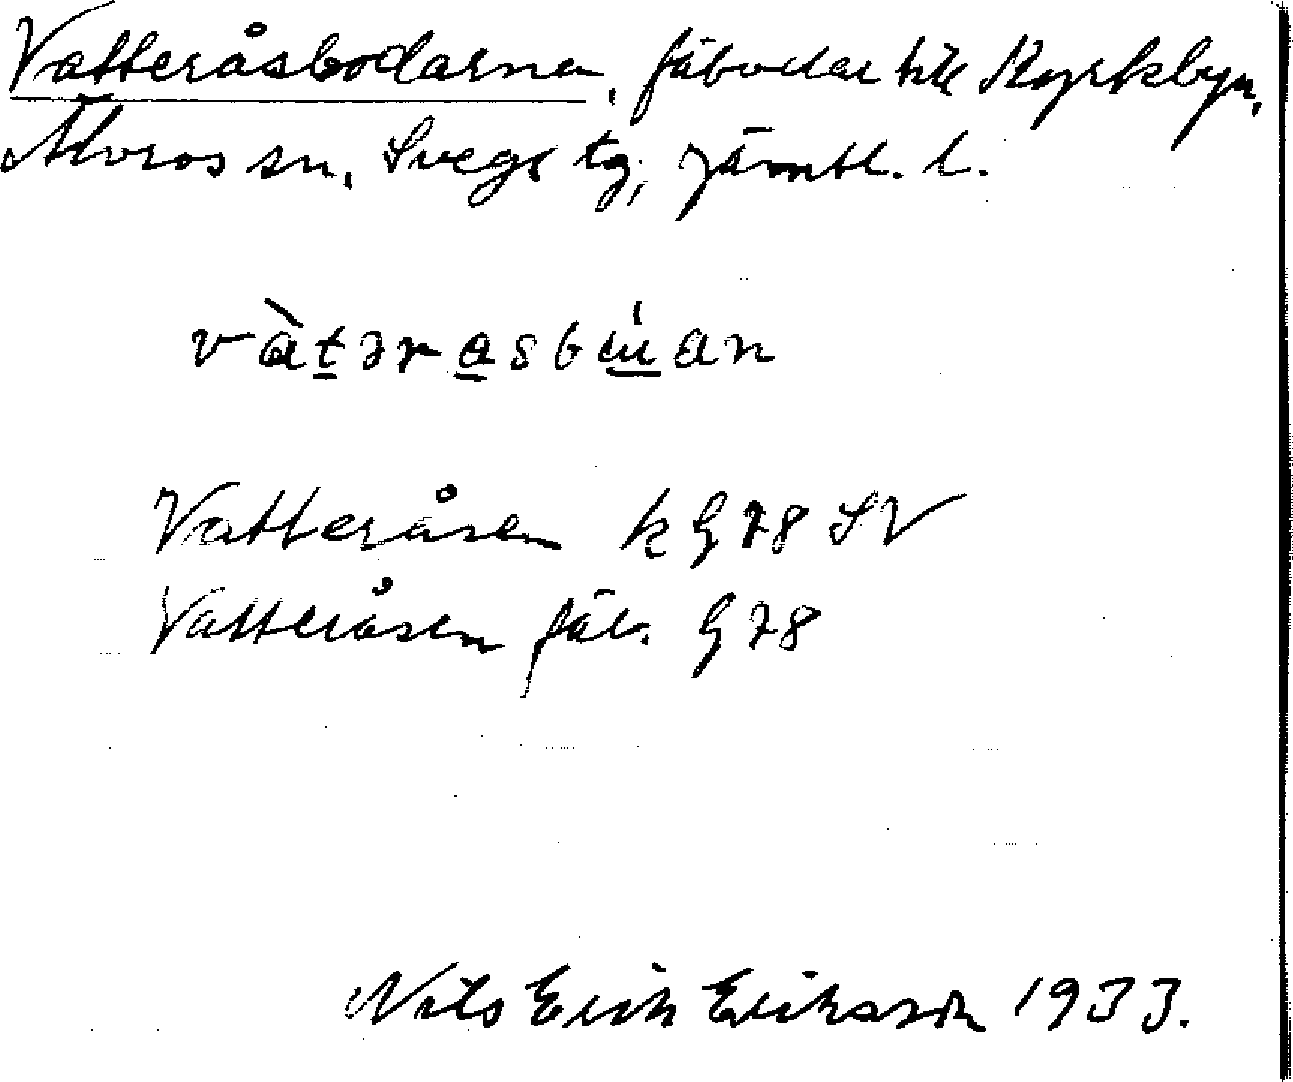 Vatteråsbodarna, fäbodar till Kyrkbyn,
Älvros sn, Svegs tg, Jämtl. l.
vàt̲əra̲sbɯ̲́an
Vatteråsen k G 28 SV
Vatteråsen fäb. G 28
Nils Erik Eriksson 1933.